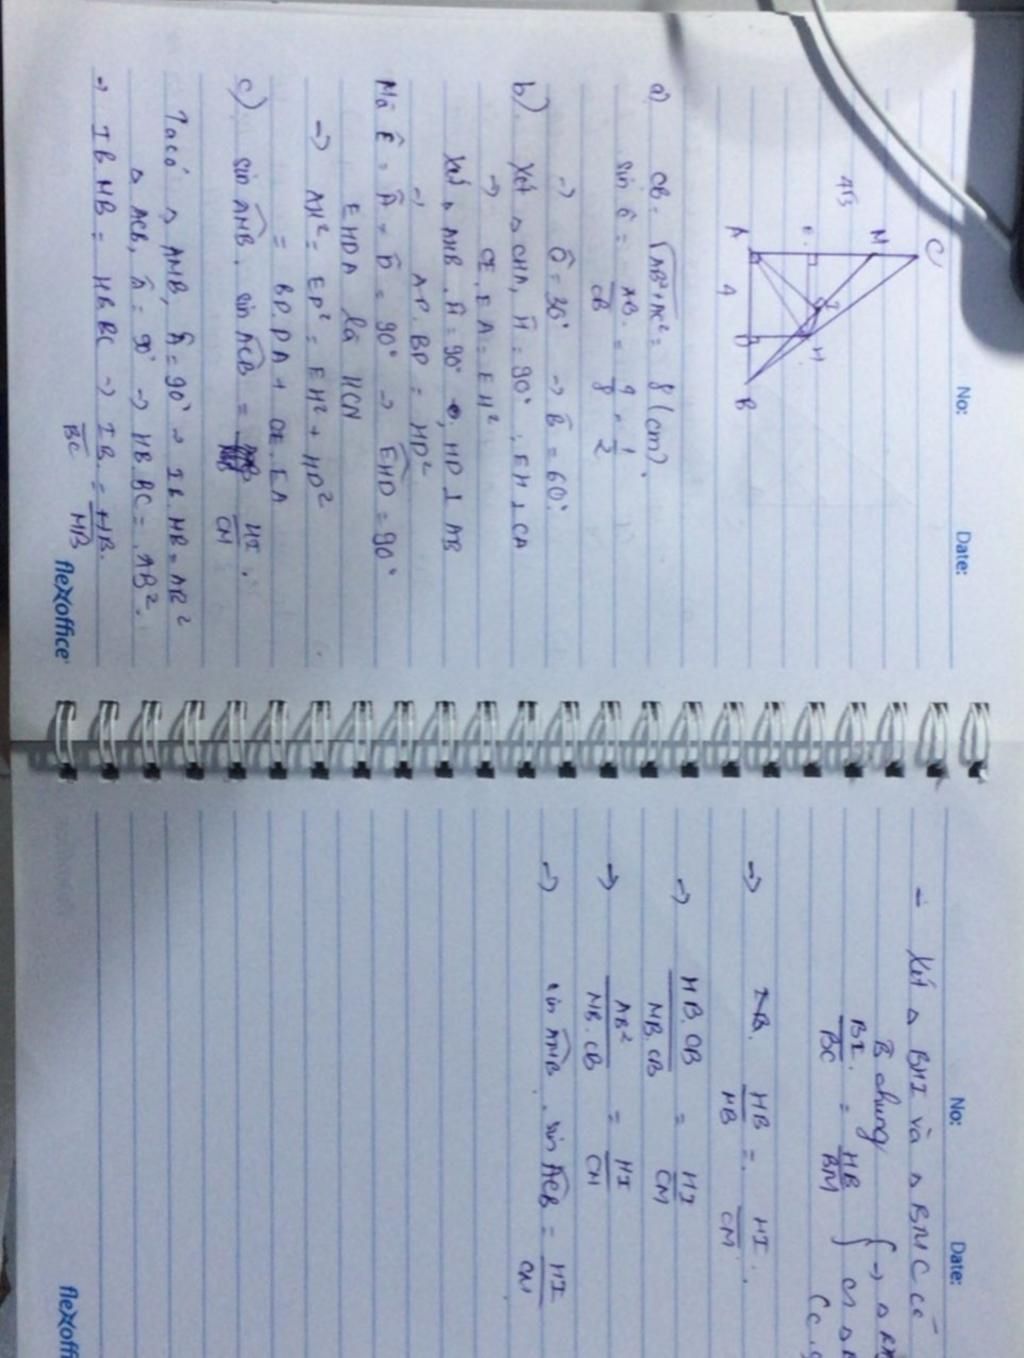 No:
Date:
C
M
E
I
H
A
D
B
4√3
4
a) CB = √AB²+AC² = 8 (cm).
sin Ĉ = AB/CB = 4/8 = 1/2
→ Ĉ = 30° → B̂ = 60°
b) Xét △ CHA, Ĥ = 90°, EH ⊥ CA
→ CE.EA = EH²
Xét △ AHB, Ĥ = 90°, HD ⊥ AB
→ AD.BD = HD²
Mà Ê = Â = D̂ = 90° → EHD = 90°
EHDA là HCN
→ AH² = ED² = EH² + HD²
= BD.DA + CE.EA
c) sin AMB . sin ACB = HI/CM.
Ta có △ AMB, Â = 90° → IB.MB = AB²
△ ACB, Â = 90° → HB.BC = AB².
→ IB.MB = HB.BC → IB/BC = HB/MB.
flexoffice
No:
Date:
– Xét △ BHI và △ BMC có
B̂ chung
BI/BC = HB/BM
→ HB/MB = HI/CM.
→ HB.CB/MB.CB = HI/CM
→ AB²/MB.CB = HI/CM
→ sin AMB . sin ACB = HI/CM
flexoff